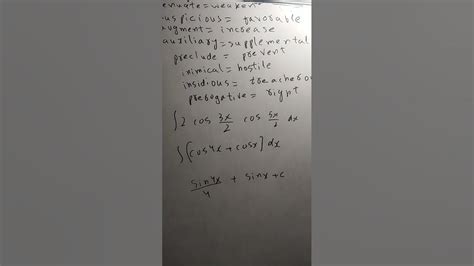 enuate = weaken
uspicious = favorable
augment = increase
auxiliary = supplemental
preclude = prevent
inimical = hostile
insidious = treachero
prerogative = right
∫2 cos 3x/2 cos 5x/2 dx
∫(cos4x + cosx) dx
sin4x/4 + sinx + c